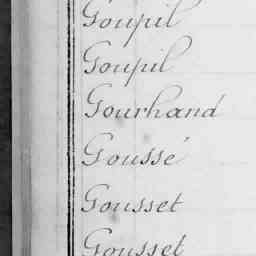 Goupil
Goupil
Gourhand
Goussé
Gousset
Gousset